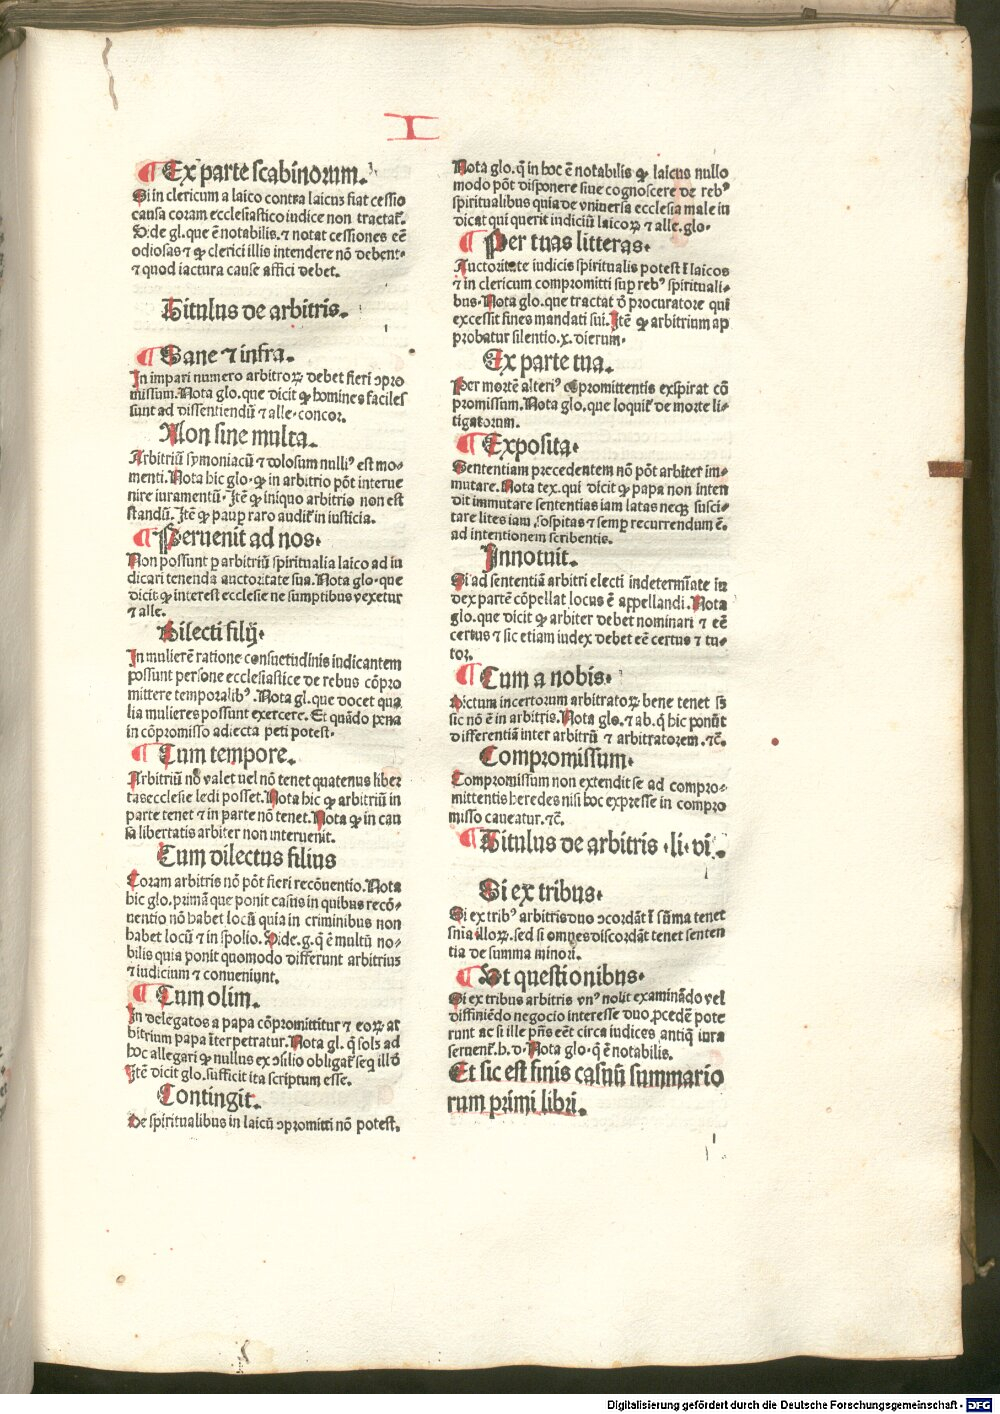 I
¶ Ex parte scabinorum.
Si in clericum a laico contra laicus fiat cessio
causa coram ecclesiastico iudice non tractat̃.
Vide gl. que ē notabilis. ⁊ notat cessiones eē
odiosas ⁊ ꝙ clerici illis intendere nō debent·
⁊ quod iactura cause affici debet.
Titulus de arbitris.
¶ Sane ⁊ infra.
In impari numero arbitroꝝ debet fieri ꝯpro
missum. Nota glo. que dicit ꝙ homines faciles
sunt ad dissentiendū ⁊ alle· concor.
Non sine multa.
Arbitriū symoniacū ⁊ dolosum nulliꝰ est mo-
menti. Nota hic glo· ꝙ in arbitrio pōt interue
nire iuramentū· Itē ꝙ iniquo arbitrio non est
standū. Itē ꝙ paup̄ raro audit̃ in iusticia.
¶ Peruenit ad nos·
Non possunt ꝑ arbitriū spiritualia laico ad iu
dicari tenenda auctoritate sua. Nota glo· que
dicit ꝙ interest ecclesie ne sumptibus vexetur
⁊ alle.
Dilecti filij·
In mulierē ratione consuetudinis iudicantem
possunt persone ecclesiastice de rebus cōpro
mittere temporalibꝰ. Nota gl. que docet qua
lia mulieres possunt exercere. Et quādo pena
in cōpromisso adiecta peti potest·
¶ Cum tempore.
Arbitriū nō valet vel nō tenet quatenus liber
tas ecclesie ledi posset. Nota hic ꝙ arbitriū in
parte tenet ⁊ in parte nō tenet. Nota ꝙ in cau
sa libertatis arbiter non interuenit.
Cum dilectus filius
Coram arbitris nō pōt fieri recōuentio. Nota
hic glo. primā que ponit casus in quibus recō-
uentio nō habet locū quia in criminibus non
habet locū ⁊ in spolio. Vide. g. q̄ ē multū no-
bilis quia ponit quomodo differunt arbitrius
⁊ iudicium ⁊ conueniunt.
¶ Cum olim.
In delegatos a papa cōpromittitur ⁊ eoꝝ ar
bitrium papa īterpetratur. Nota gl. q̄ sols ad
hoc allegari ꝙ nullus ex ꝯsilio obligat̃ seq illd̄
Itē dicit glo. sufficit ita scriptum esse.
Contingit.
De spiritualibus in laicū ꝯpromitti nō potest.
Nota glo. q̄ in hoc ē notabilis ꝙ laicus nullo
modo pōt disponere siue cognoscere de rebꝰ
spiritualibus quia de vniuersa ecclesia male iu
dicat qui querit iudiciū laicoꝝ ⁊ alle. glo·
¶ Per tuas litteras·
Auctoritate iudicis spiritualis potest ī laicos
⁊ in clericum compromitti sup̄ rebꝰ spirituali-
bus· Nota glo. que tractat d̄ procuratore qui
excessit fines mandati sui. Itē ꝙ arbitrium ap
probatur silentio. x. dierum·
Ex parte tua.
Per mortē alteriꝰ cōpromittentis exspirat cō
promissum. Nota glo. que loquit̃ de morte li-
tigatorum.
¶ Exposita·
Sententiam precedentem nō pōt arbiter im-
mutare. Nota tex. qui dicit ꝙ papa non inten
dit immutare sententias iam latas neqꝫ susci-
tare lites iam sospitas ⁊ semꝑ recurrendum ē.
ad intentionem scribentis.
Innotuit.
Si ad sententiā arbitri electi indetermīate iu
dex partē cōpellat locus ē appellandi. Nota
glo. que dicit ꝙ arbiter debet nominari ⁊ eē
certus ⁊ sic etiam iudex debet eē certus ⁊ tu-
tor.
¶ Cum a nobis·
Dictum incertorum arbitratoꝝ bene tenet sꝫ
sic nō ē in arbitris. Nota glo. ⁊ ab. q̄ hic ponūt
differentiā inter arbitrū ⁊ arbitratorem. ⁊c̄.
Compromissum·
Compromissum non extendit se ad compro-
mittentis heredes nisi hoc expresse in compro
misso caueatur. ⁊c̄.
¶ Titulus de arbitris ·li· vi·.
Si ex tribus·
Si ex tribꝰ arbitris duo ꝯcordāt ī sūma tenet
snīa illoꝝ. sed si omnes discordāt tenet senten
tia de summa minori.
¶ Ut questionibus·
Si ex tribus arbitris vnꝰ nolit examinādo vel
diffiniēdo negocio interesse duo ꝓcedēt pote
runt ac si ille p̄ns eēt circa iudices antiq̄ iura
seruent̃. h. d· Nota glo· q̄ ē notabilis.
Et sic est finis casuū summario
rum primi libri.
Digitalisierung gefördert durch die Deutsche Forschungsgemeinschaft - DFG